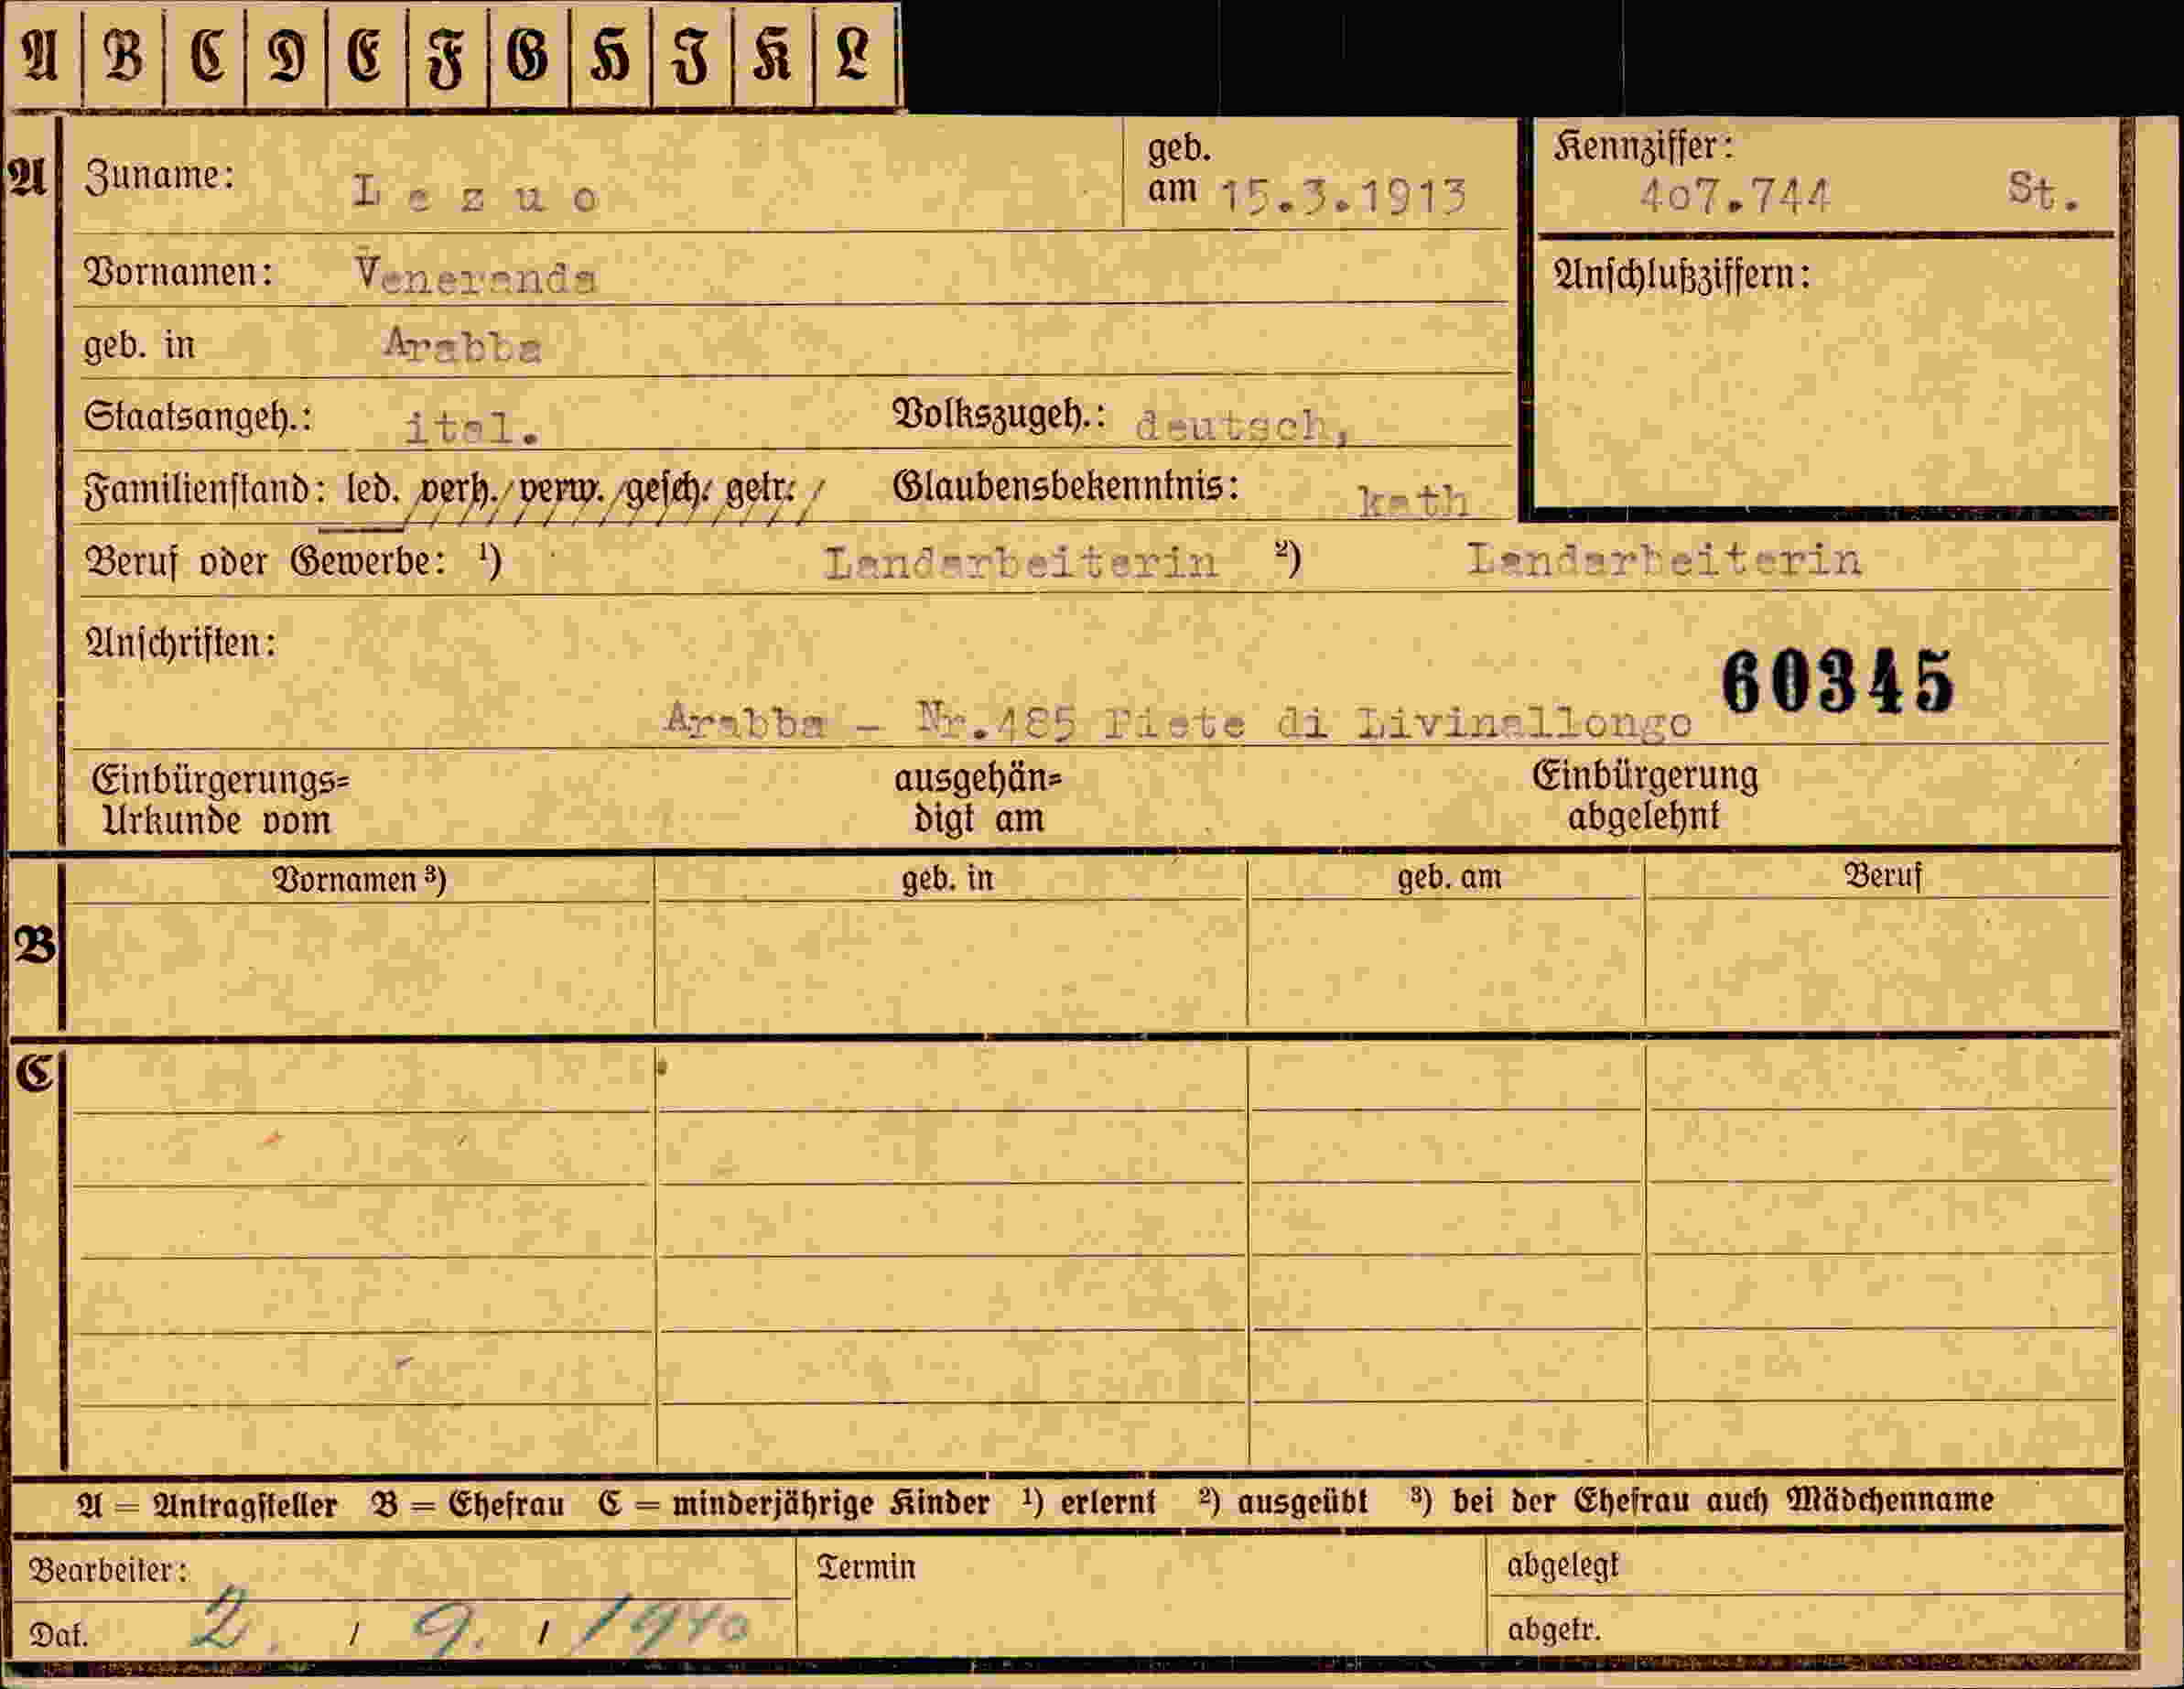 A B C D E F G H I K L
A Zuname: Lezuo geb. am 15.3.1913 Kennziffer: 407.744 St.
Vornamen: Veneranda Anschlußziffern:
geb. in Arabba
Staatsangeh.: ital. Volkszugeh.: deutsch,
Familienstand: led. verh. verw. gesch. getr. Glaubensbekenntnis: kath
Beruf oder Gewerbe: ¹) Landarbeiterin ²) Landarbeiterin
Anschriften:
60345
Arabba - Nr.485 Piete di Livinallongo
Einbürgerungs= Urkunde vom ausgehän= digt am Einbürgerung abgelehnt
Vornamen ³) geb. in geb. am Beruf
B
C
A = Antragsteller B = Ehefrau C = minderjährige Kinder ¹) erlernt ²) ausgeübt ³) bei der Ehefrau auch Mädchenname
Bearbeiter: Termin abgelegt
Dat. 2. / 9. / 1940 abgetr.